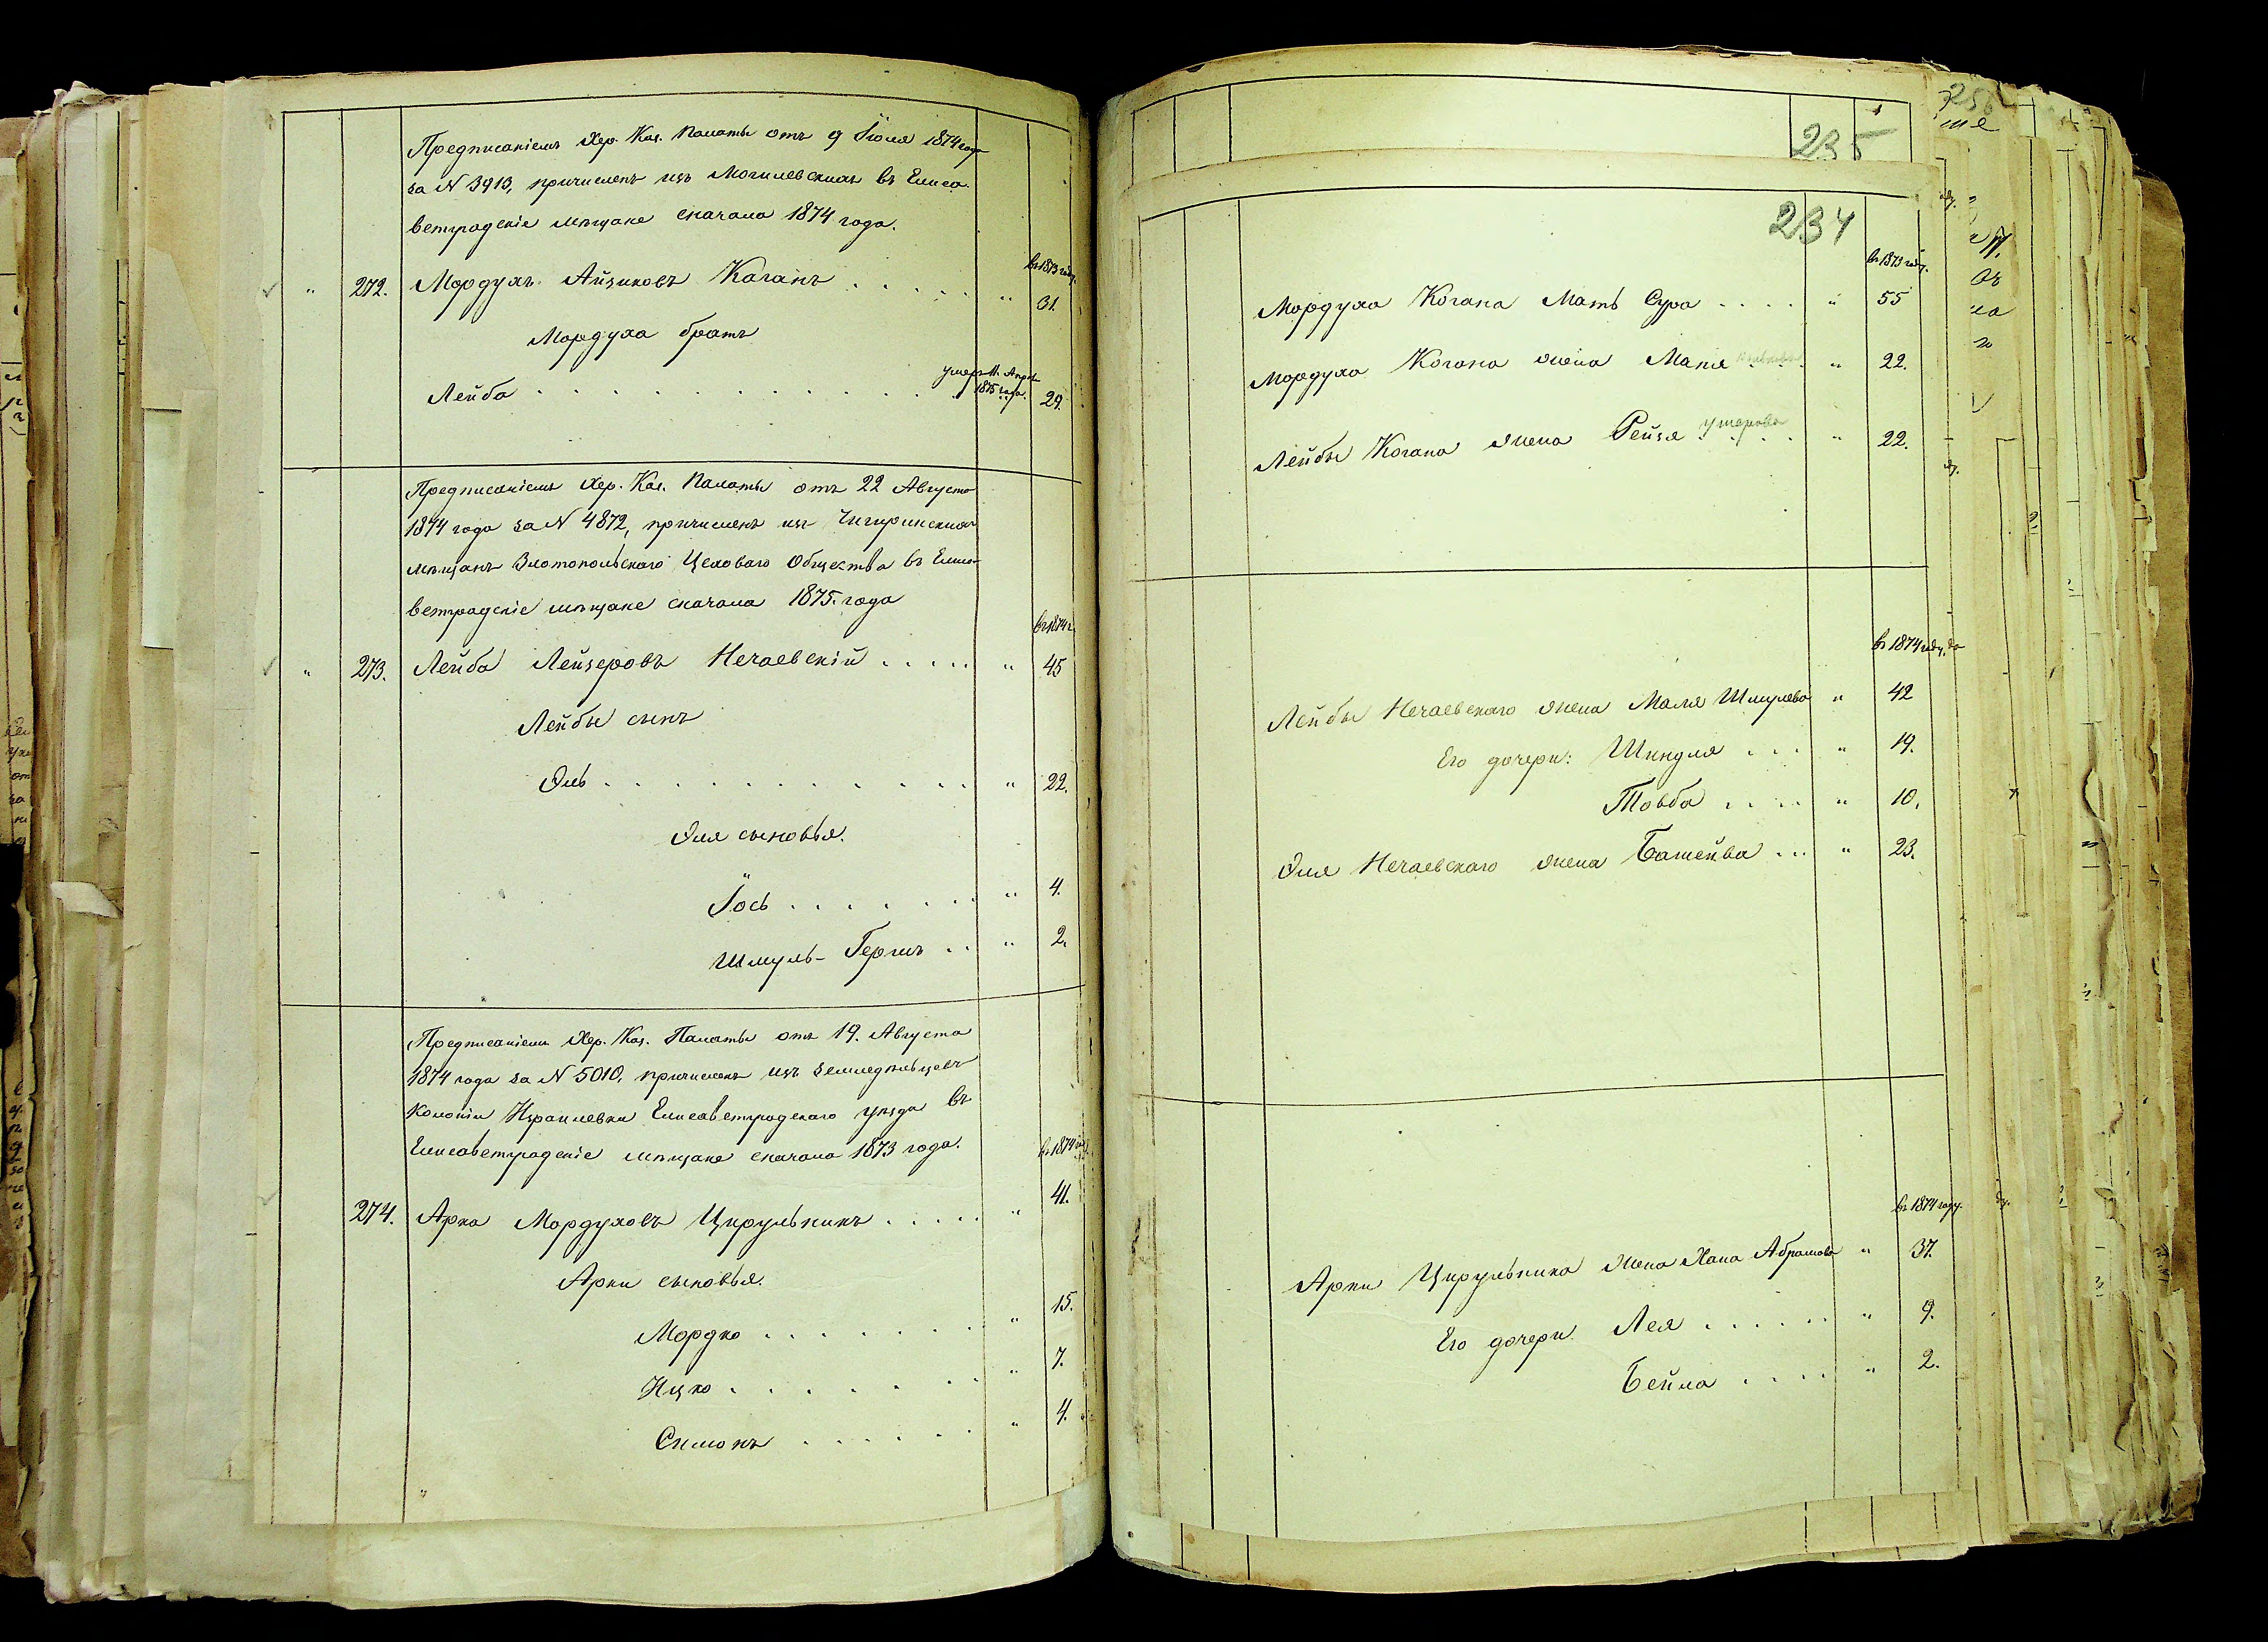 Предписаніемъ Хер. Каз. Палаты отъ 9 Іюля 1874 года
за N 3913, причисленъ изъ Могилевскихъ въ Елиса-
ветградскіе мѣщане сначала 1874 года.
въ 1873 году.
" 272. Мордухъ Айзиковъ Каганъ . . . . . " 31.
Мордуха братъ
умеръ 11. Апрѣл
1875 года.
Лейба . . . . . . . . . . . . 29.
Предписаніемъ Хер. Каз. Палаты отъ 22 Августа
1874 года за N 4872, причисленъ изъ Чигиринскихъ
мѣщанъ Златопольскаго Цеховаго Общества въ Елиса-
ветградскіе мѣщане сначала 1875. года
въ 1874 г.
" 273. Лейба Лейзеровъ Нечаевскій . . . . . " 45
Лейбы сынъ
Эль . . . . . . . . . . . . " 22.
Эля сыновья.
Іось . . . . . . . " 4.
Шмуль-Гершъ . . " 2.
Предписаніемъ Хер. Каз. Палаты отъ 19. Августа
1874 года за N 5010, причисленъ изъ земледѣльцевъ
Колоніи Израилевки Елисаветградскаго уѣзда въ
Елисаветградскіе мѣщане сначала 1873 года.
въ 1874 году.
274. Арка Мордуховъ Цирульникъ . . . . . " 41.
Арки сыновья.
Мордко . . . . . . . . " 15.
Ицко . . . . . . . " 7.
Симонъ . . . . . . " 4.
235
234
въ 1873 году.
Мордуха Когана Мать Сура . . . . " 55
Мордуха Когана жена Маня . . . . " 22.
Лейбы Когана жена Рейзя умерова . . . " 22.
въ 1874 году.
Лейбы Нечаевскаго жена Маля Шмулева " 42
Его дочери: Шиндля . . . " 19.
Товба . . . . " 10.
Эля Нечаевскаго жена Башейва . . . " 23.
въ 1874 году.
Арки Цирульника жена Хана Абрамова " 37.
Его дочери. Лея . . . . . . " 9.
Бейла . . . . " 2.